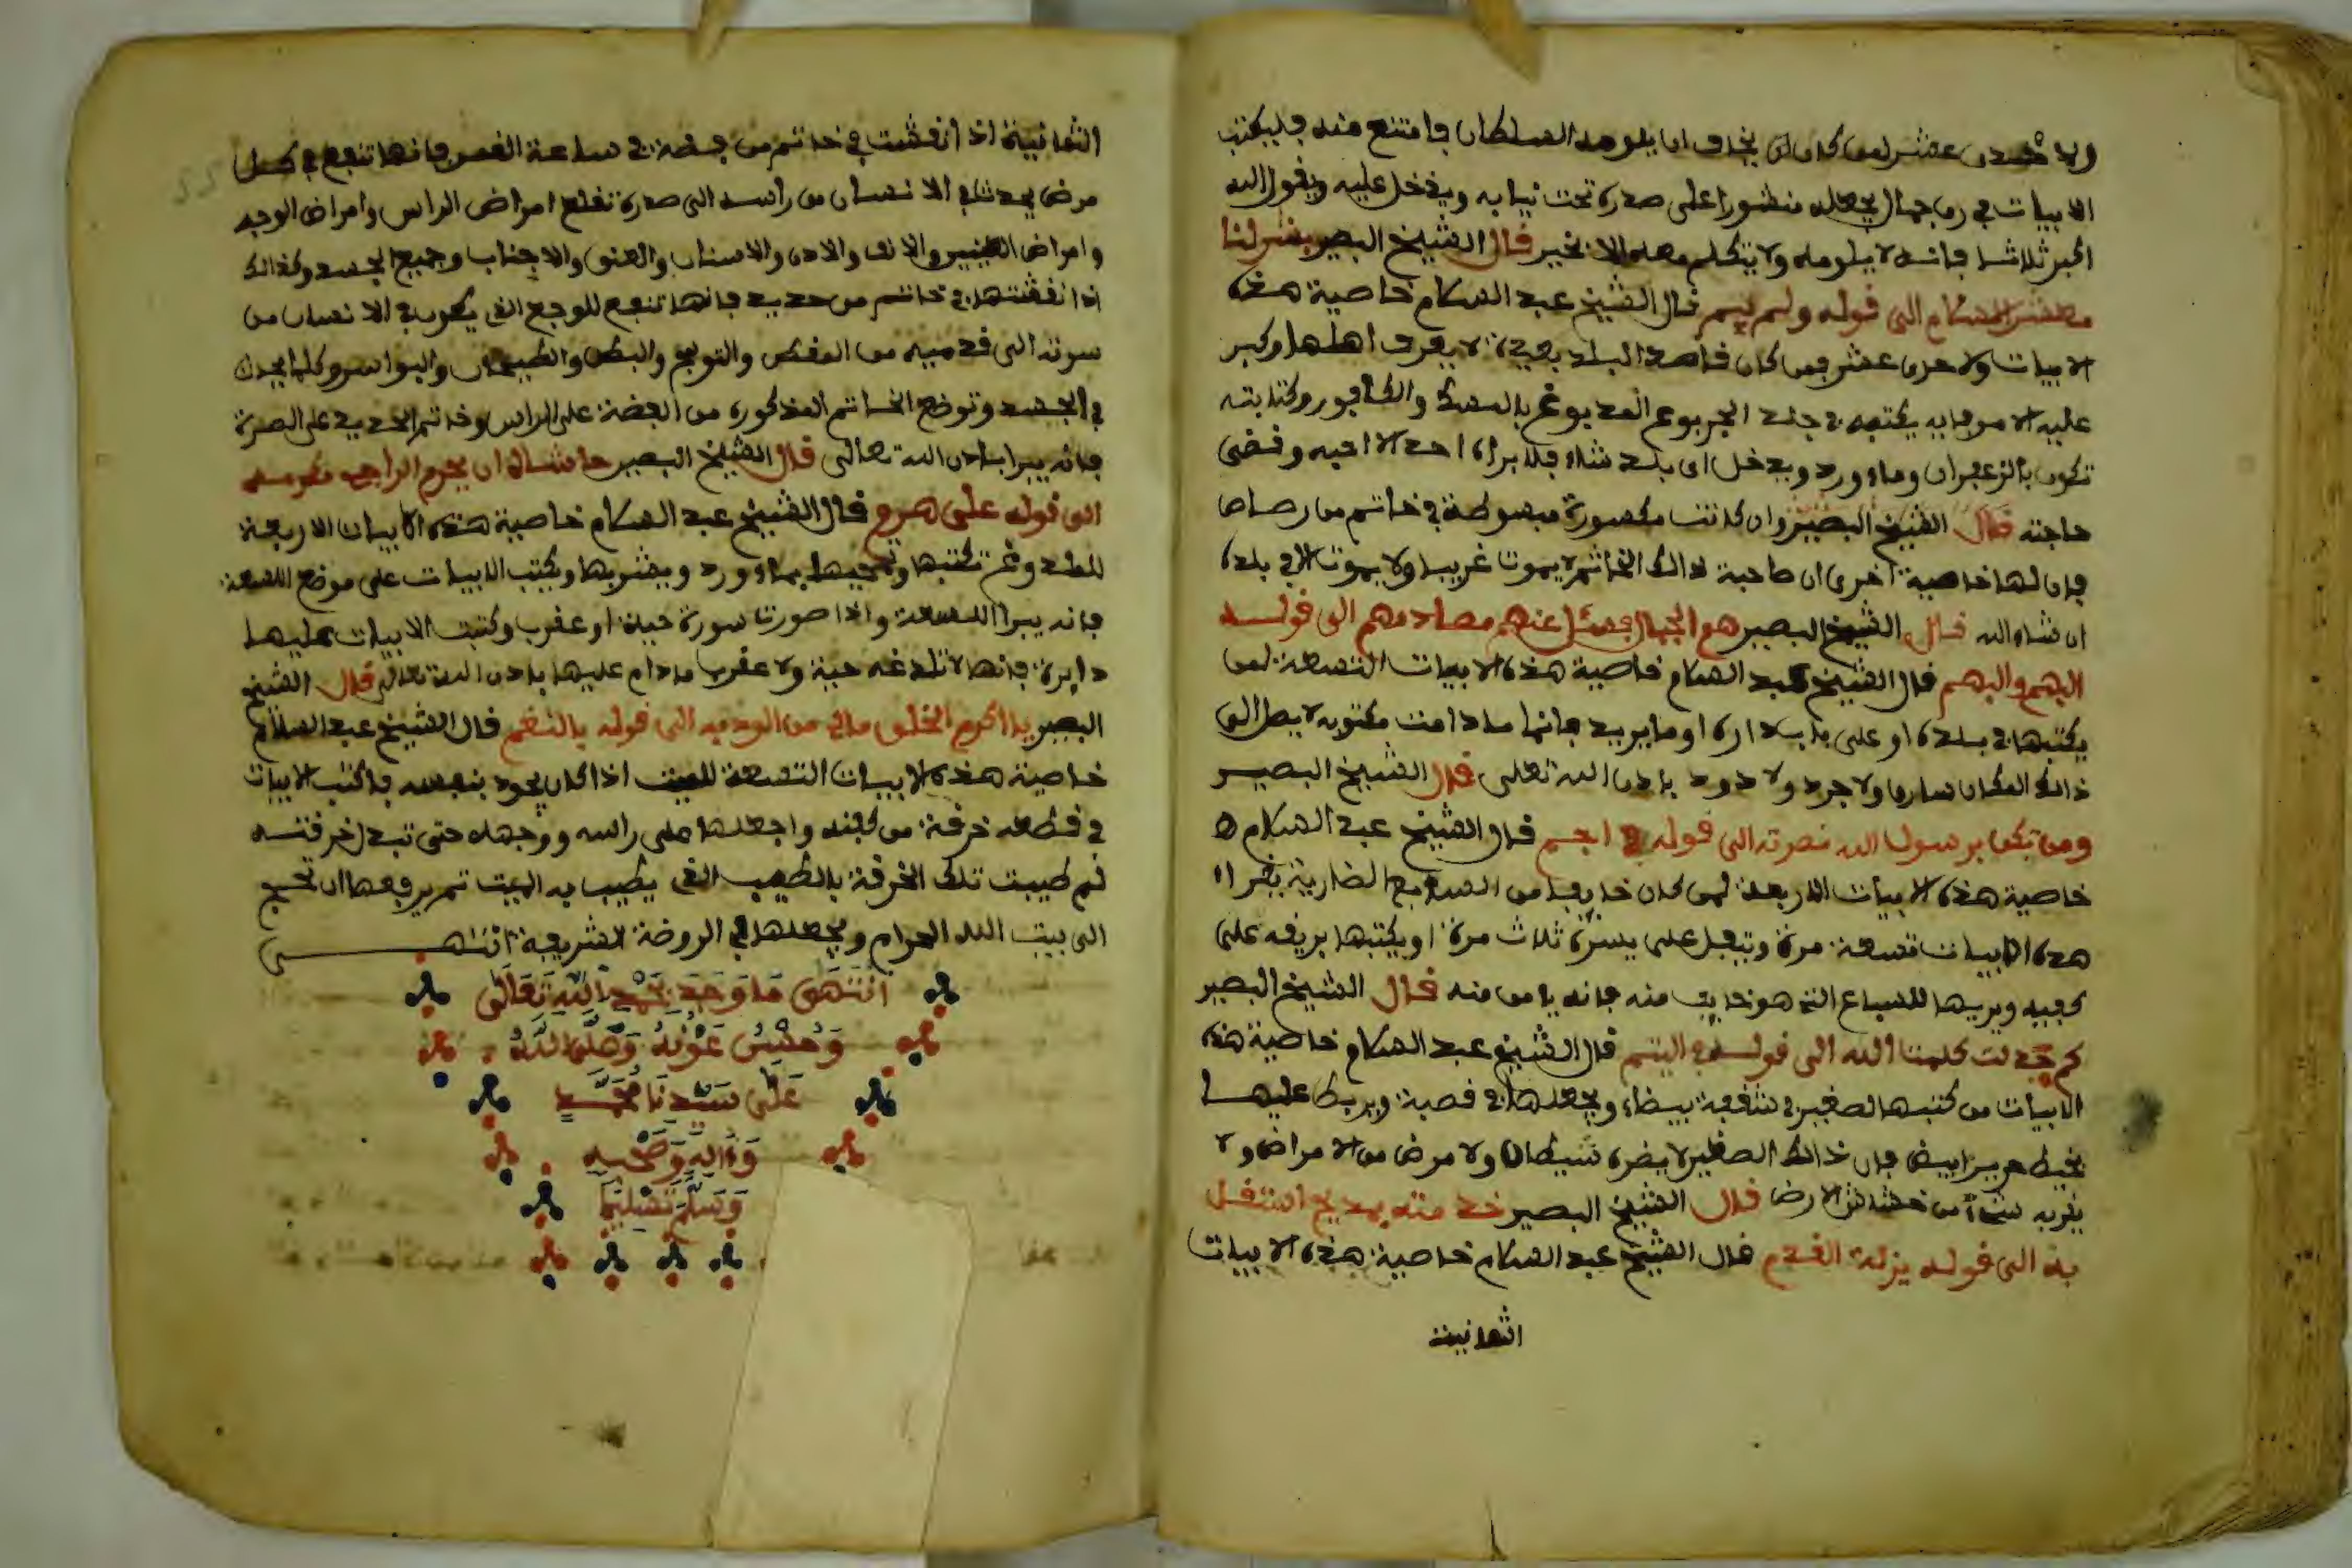 الابيات في رق جمال يجعله منشورا على صدره تحت ثيابه ويدخل عليه ويقول الله
اكبر ثلاثا فانه لا يلومه ولا يتكلم معه الا بخير قال الشيخ البصير بشرى لنا
معشر الاسلام الى قوله ولم ييم قال الشيخ عبد السلام خاصية هذه
الابيات ولاحدى عشر فمن كان قاصد البلد بعيدة لا يعرف اهلها وكبر
عليه الامر فانه يكتبه في جلد الجربوع المدبوغ بالمسك والكافور وكتابته
تكون بالزعفران وماء ورد ويدخل اى بلد شاء فلا يراه احد الا احبه وقضى
حاجته قال الشيخ البصير وان كانت مكسورة مبسوطة في خاتم من رصاص
فان لها خاصية اخرى ان صاحبة ذالك الخاتم لا يموت غريب ولا يموت الا في بلده
ان شاء الله قال الشيخ البصير هم الجبال فسئل عنهم مصادمهم الى قوله
البهم والبهم قال الشيخ عبد السلام خاصية هذه الابيات التسعة لمن
يكتبها في بلده او على باب داره او ما يريد فانها ما دامت مكتوبه لا يصل الى
ذالك المكان سارق ولا جرد ولا دود باذن الله تعلى قال الشيخ البصير
ومن تكن برسول الله نصرته الى قوله اجم قال الشيخ عبد السلام
خاصية هذه الابيات الاربعة لمن كان خايفا من السبع الضارية يقرا
هذه الابيات تسعة مرة وتبعل على يسره ثلاث مرة او يكتبها بريقه على
كفيه ويريها للسباع التي هو خايف منه فانه يامن منه قال الشيخ البصير
كم جدلت كلمت الله الى قوله في اليتم قال الشيخ عبد السلام خاصية هذه
الابيات من كتبها لصغير في شقفة بيضاء ويجعلها في قصبة ويربط عليها
بخيط حرير ابيض فان ذالك الصغير لا يضره شيطان ولا مرض من الامراض ولا
يقربه شيء من خشاش الارض قال الشيخ البصير خدمته بمديح استقل
به الى قوله يزلة القدم قال الشيخ عبد السلام خاصية هذه الابيات
الثمانية
الثمانية اذا انقشت في خاتم من فضة في ساعة القمر فانها تنفع في كل
مرض يحدث في الانسان من راسه الى صدره تقلع امراض الراس وامراض الوجه
وامراض العينين والانف والاذن والاسنان والعنق والاجناب وجميع الجسد وكذالك
اذا نقشتها في خاتم من حديد فانها تنفع للوجع الذي يكون في الانسان من
سرته الى قدميه من المغص والتولج والبطن والطيحان والبواسر وكلما يحدث
في الجسد وتوضع الخاتم المذكوره من الفضة على الراس وخاتم الحديد على الصرة
فانه يبرا باذن الله تعالى قال الشيخ البصير حاشاه ان يحرم الراجي مكرمه
الى قوله على هرم قال الشيخ عبد السلام خاصية هذه الابيات الاربعة
للملدوغ تكتبها وتمحيها بماء ورد ويشربها ويكتب الابيات على موضع اللسعة
فانه يبرا اللسعة واذا صورت سورة حية او عقرب وكتبت الابيات عليها
دايرة فانها لا تلدغه حية ولا عقرب ما دام عليها باذن الله تعالى قال الشيخ
البصير يا اكرم الخلق مالي من الوذ به الى قوله بالنغم قال الشيخ عبد السلام
خاصية هذه الابيات التسعة للميت اذا كان يجود بنفسه فاكتب الابيات
في قطعه خرقة من كفنه واجعلها على راسه ووجهه حتى تبدل خرقته
ثم طيبت تلك الخرقة بالطيب الذي يطيب به الميت ثم يرفعها ان تحج
الى بيت الله الحرام ويجعلها في الروضة الشريفة انتهى
انتهى ما وجد بحمد الله تعالى
وحسن عونه وصلى الله
على سيدنا محمد
وءاله وصحبه
وسلم تسليما